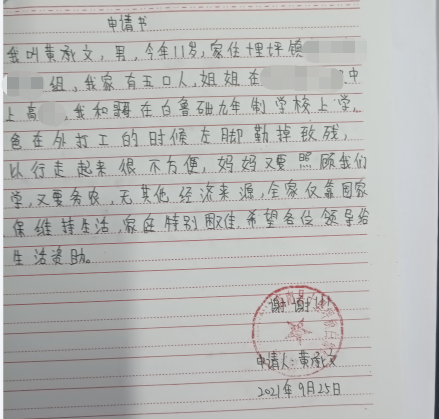 申请书
我叫黄承文,男,今年11岁,家住埋坪镇
组,我家有五口人,姐姐在 中
上高 ,我和哥在白鲁础九年制学校上学,
爸在外打工的时候左脚勒掉致残,
以行走起来很不方便,妈妈又要照顾我们
学,又要务农,无其他经济来源,全家仅靠国家
保维持生活,家庭特别困难,希望各位领导给
生活资助。
谢谢!
申请人:黄承文
2021年9月25日